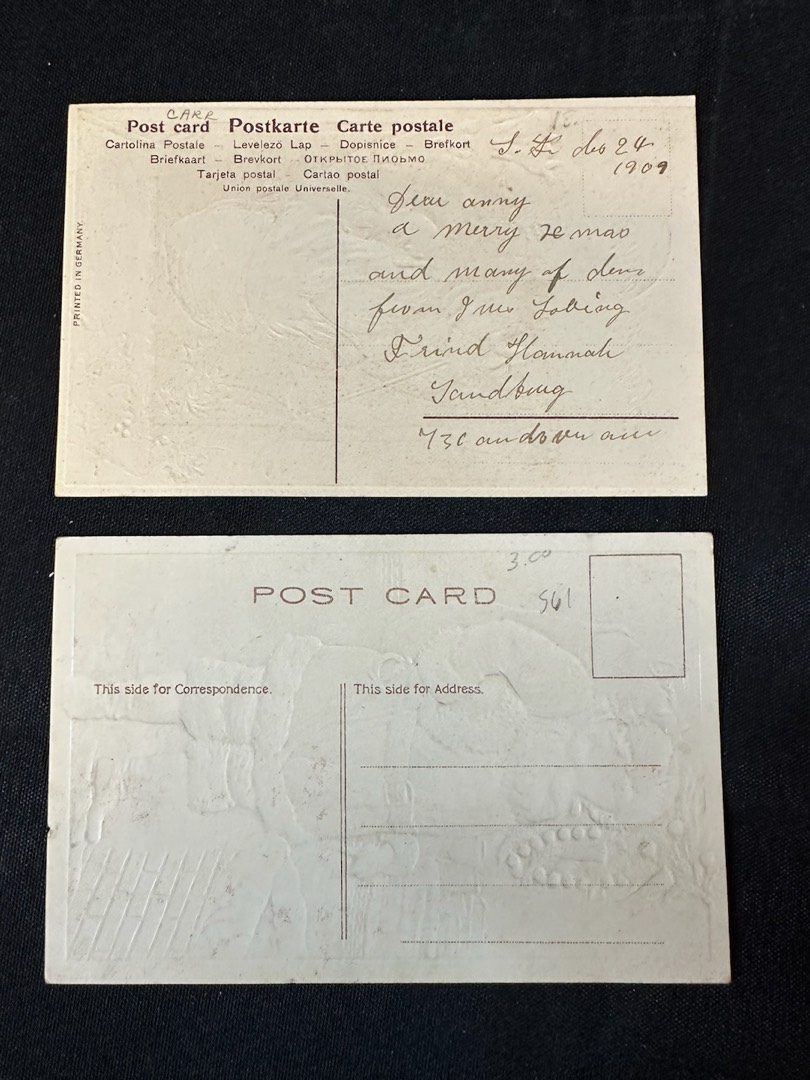 CARR
Post card Postkarte Carte postale
Cartolina Postale – Levelező Lap – Dopisnice – Brefkort
Briefkaart – Brevkort – Открытое Письмо
Tarjeta postal – Cartao postal
Union postale Universelle.
PRINTED IN GERMANY.
24
1909
Dear anny
a merry
and many of
from
Frind Hannah
Sandburg
3.00
POST CARD
561
This side for Correspondence.
This side for Address.